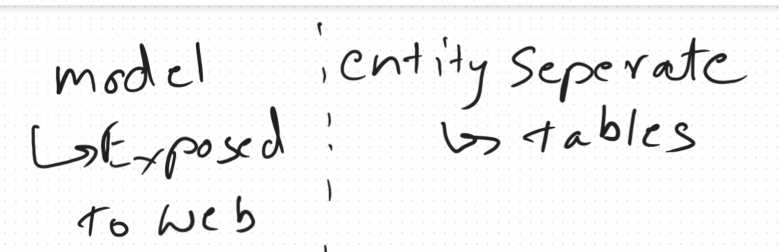 model
↳Exposed
to web
entity Seperate
↳ tables